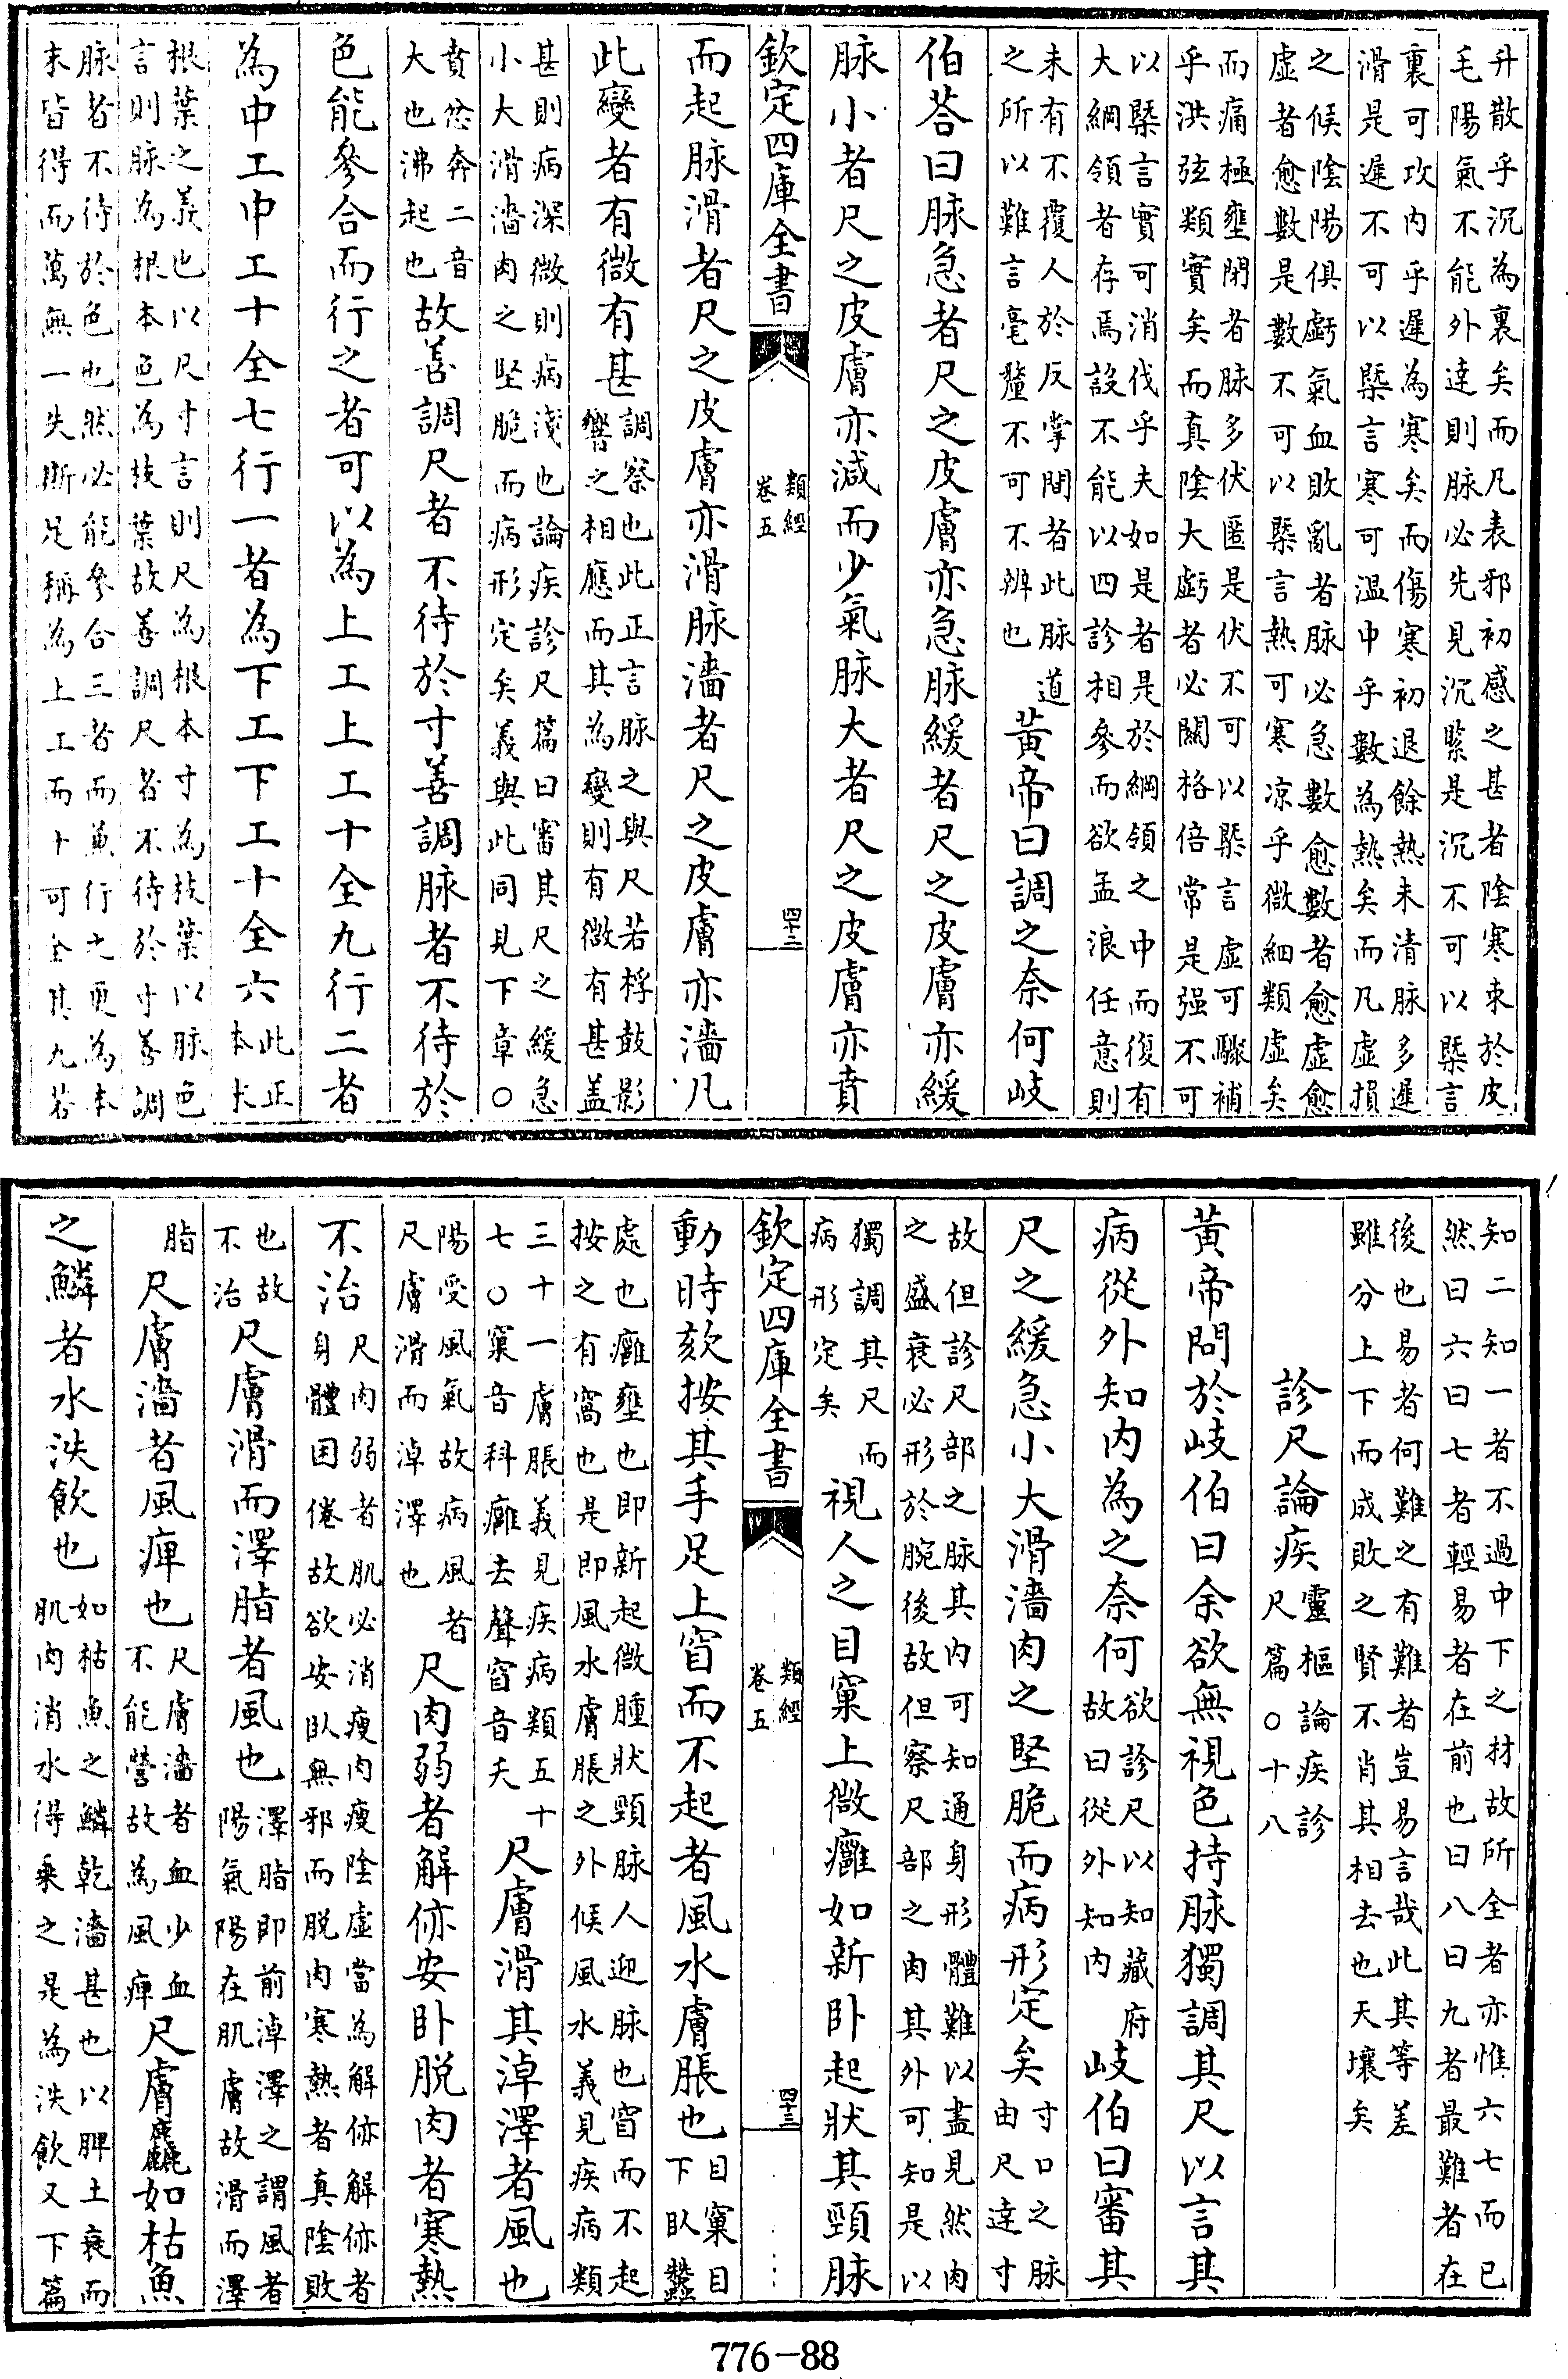 升散乎沉為裏矣而凡表邪初感之甚者陰寒束於皮
毛陽氣不能外達則脉必先見沉緊是沉不可以槩言
裏可攻內乎遲為寒矣而傷寒初退餘熱未清脉多遲
滑是遲不可以槩言寒可温中乎數為熱矣而凡虛損
之候陰陽俱虧氣血敗亂者脉必急數愈數者愈虛愈
虛者愈數是數不可以槩言熱可寒凉乎微細類虛矣
而痛極壅閉者脉多伏匿是伏不可以槩言虛可驟補
乎洪弦類實矣而真陰大虧者必關格倍常是强不可
以槩言實可消伐乎夫如是者是於綱領之中而復有
大綱領者存焉設不能以四診相參而欲孟浪任意則
未有不覆人於反掌間者此脉道
之所以難言毫釐不可不辨也
黃帝曰調之奈何岐
伯荅曰脉急者尺之皮膚亦急脉緩者尺之皮膚亦緩
脉小者尺之皮膚亦減而少氣脉大者尺之皮膚亦賁
欽定四庫全書
類經
卷五
四十三
而起脉滑者尺之皮膚亦滑脉濇者尺之皮膚亦濇凡
此變者有微有甚
調察也此正言脉之與尺若桴鼓影
響之相應而其為變則有微有甚盖
甚則病深微則病淺也論疾診尺篇曰審其尺之緩急
小大滑濇肉之堅脆而病形定矣義與此同見下章○
賁忿奔二音
大也沸起也
故善調尺者不待於寸善調脉者不待於
色能參合而行之者可以為上工上工十全九行二者
為中工中工十全七行一者為下工下工十全六
此正
本末
根葉之義也以尺寸言則尺為根本寸為枝葉以脉色
言則脉為根本色為枝葉故善調尺者不待於寸善調
脉者不待於色也然必能參合三者而兼行之更為本
末皆得而萬無一失斯足稱為上工而十可全其九若
知二知一者不過中下之材故所全者亦惟六七而已
然曰六曰七者輕易者在前也曰八曰九者最難者在
後也易者何難之有難者豈易言哉此其等差
雖分上下而成敗之賢不肖其相去也天壤矣
診尺論疾
靈樞論疾診
尺篇○十八
黃帝問於岐伯曰余欲無視色持脉獨調其尺以言其
病從外知內為之奈何
欲診尺以知藏府
故曰從外知內
岐伯曰審其
尺之緩急小大滑濇肉之堅脆而病形定矣
寸口之脉
由尺達寸
故但診尺部之脉其內可知通身形體難以盡見然肉
之盛衰必形於腕後故但察尺部之肉其外可知是以
獨調其尺而
病形定矣
視人之目窠上微癰如新卧起狀其頸脉
欽定四庫全書
類經
卷五
四十三
動時欬按其手足上窅而不起者風水膚脹也
目窠目
下臥蠶
處也癰壅也即新起微腫狀頸脉人迎脉也窅而不起
按之有窩也是即風水膚脹之外候風水義見疾病類
三十一膚脹義見疾病類五十
七○窠音科癰去聲窅音夭
尺膚滑其淖澤者風也
陽受風氣故病風者
尺膚滑而淖澤也
尺肉弱者解㑊安卧脱肉者寒熱
不治
尺肉弱者肌必消瘦肉瘦陰虛當為解㑊解㑊者
身體困倦故欲安臥無邪而脱肉寒熱者真陰敗
也故
不治
尺膚滑而澤脂者風也
澤脂即前淖澤之謂風者
陽氣陽在肌膚故滑而澤
脂
尺膚濇者風痺也
尺膚濇者血少血
不能營故為風痺
尺膚麤如枯魚
之鱗者水泆飲也
如枯魚之鱗乾濇甚也以脾土衰而
肌肉消水得乘之是為泆飲又下篇
776-88